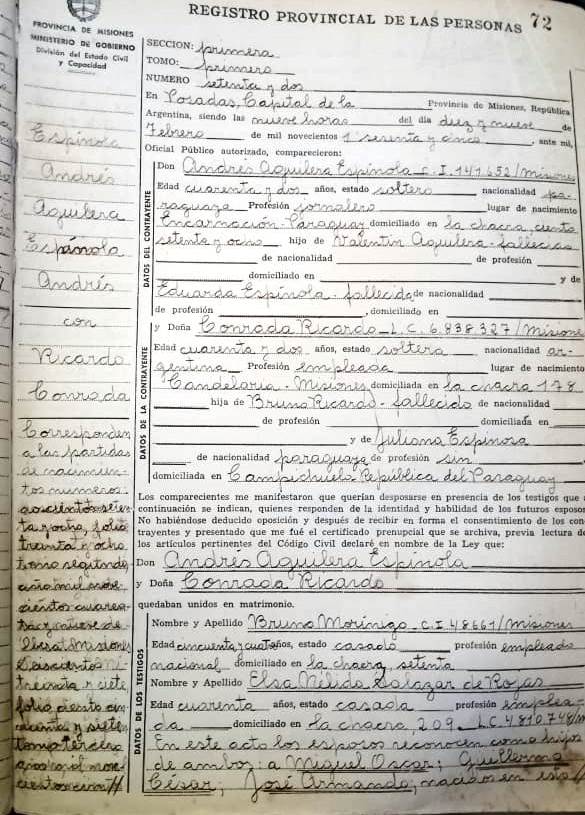 REGISTRO PROVINCIAL DE LAS PERSONAS 72
PROVINCIA DE MISIONES
MINISTERIO DE GOBIERNO
División del Estado Civil
y Capacidad
SECCION: primera
TOMO: primero
NUMERO setenta y dos
En Posadas, Capital de la Provincia de Misiones, República
Argentina, siendo las nueve horas del día diez y nueve de
Febrero de mil novecientos sesenta y cinco, ante mí,
Oficial Público autorizado, comparecieron:
Don Andrés Aguilera Espínola C.I. 141.652/Misiones
Edad cuarenta y dos años, estado soltero nacionalidad pa-
raguaya Profesión jornalero lugar de nacimiento
Encarnación-Paraguay domiciliado en la chacra, ciento
setenta y ocho hijo de Valentín Aguilera-fallecido
de nacionalidad de profesión
domiciliado en y de
Eduarda Espínola-fallecida de nacionalidad
de profesión , domiciliado en
y Doña Conrada Ricardo-L.C. 6.838.327/Misiones
Edad cuarenta y dos años, estado soltera nacionalidad ar-
gentina Profesión empleada lugar de nacimiento
Candelaria-Misiones domiciliada en la chacra 178
hija de Bruno Ricardo-fallecido de nacionalidad
de profesión domiciliada en
y de Juliana Espinosa
de nacionalidad paraguaya de profesión sin
domiciliada en Campichuelo, República del Paraguay
DATOS DEL CONTRAYENTE
DATOS DE LA CONTRAYENTE
Los comparecientes me manifestaron que querían desposarse en presencia de los testigos que
continuación se indican, quienes responden de la identidad y habilidad de los futuros esposos
No habiéndose deducido oposición y después de recibir en forma el consentimiento de los con
trayentes y presentado que me fué el certificado prenupcial que se archiva, previa lectura de
los artículos pertinentes del Código Civil declaré en nombre de la Ley que:
Don Andrés Aguilera Espínola
y Doña Conrada Ricardo
quedaban unidos en matrimonio.
DATOS DE LOS TESTIGOS
Nombre y Apellido Bruno Morínigo-C.I. 48661/Misiones
Edad cincuenta y cuatro años, estado casado profesión empleado
nacional domiciliado en la chacra setenta
Nombre y Apellido Elsa Nélida Salazar de Rojas
Edad cuarenta años, estado casada profesión emplea-
da domiciliado en la chacra 209. L.C. 4.810.748/
En este acto los esposos reconocen como hijos
de ambos: a Miguel Oscar; Guillermo
César; José Armando, nacidos en esta //
Espínola
Andrés
Aguilera
Espínola
Andrés
con
Ricardo
Conrada
Corresponden
a las partidas
de nacimien-
tos números:
doscientos seten-
ta y ocho, folio
treinta y ocho
tomo segundo
año mil nove-
cientos cuaren-
ta y nueve de
Misiones
Seiscientos
treinta y siete
folio ciento cin-
cuenta y siete
tomo tercero
año mil nove-
cientos //